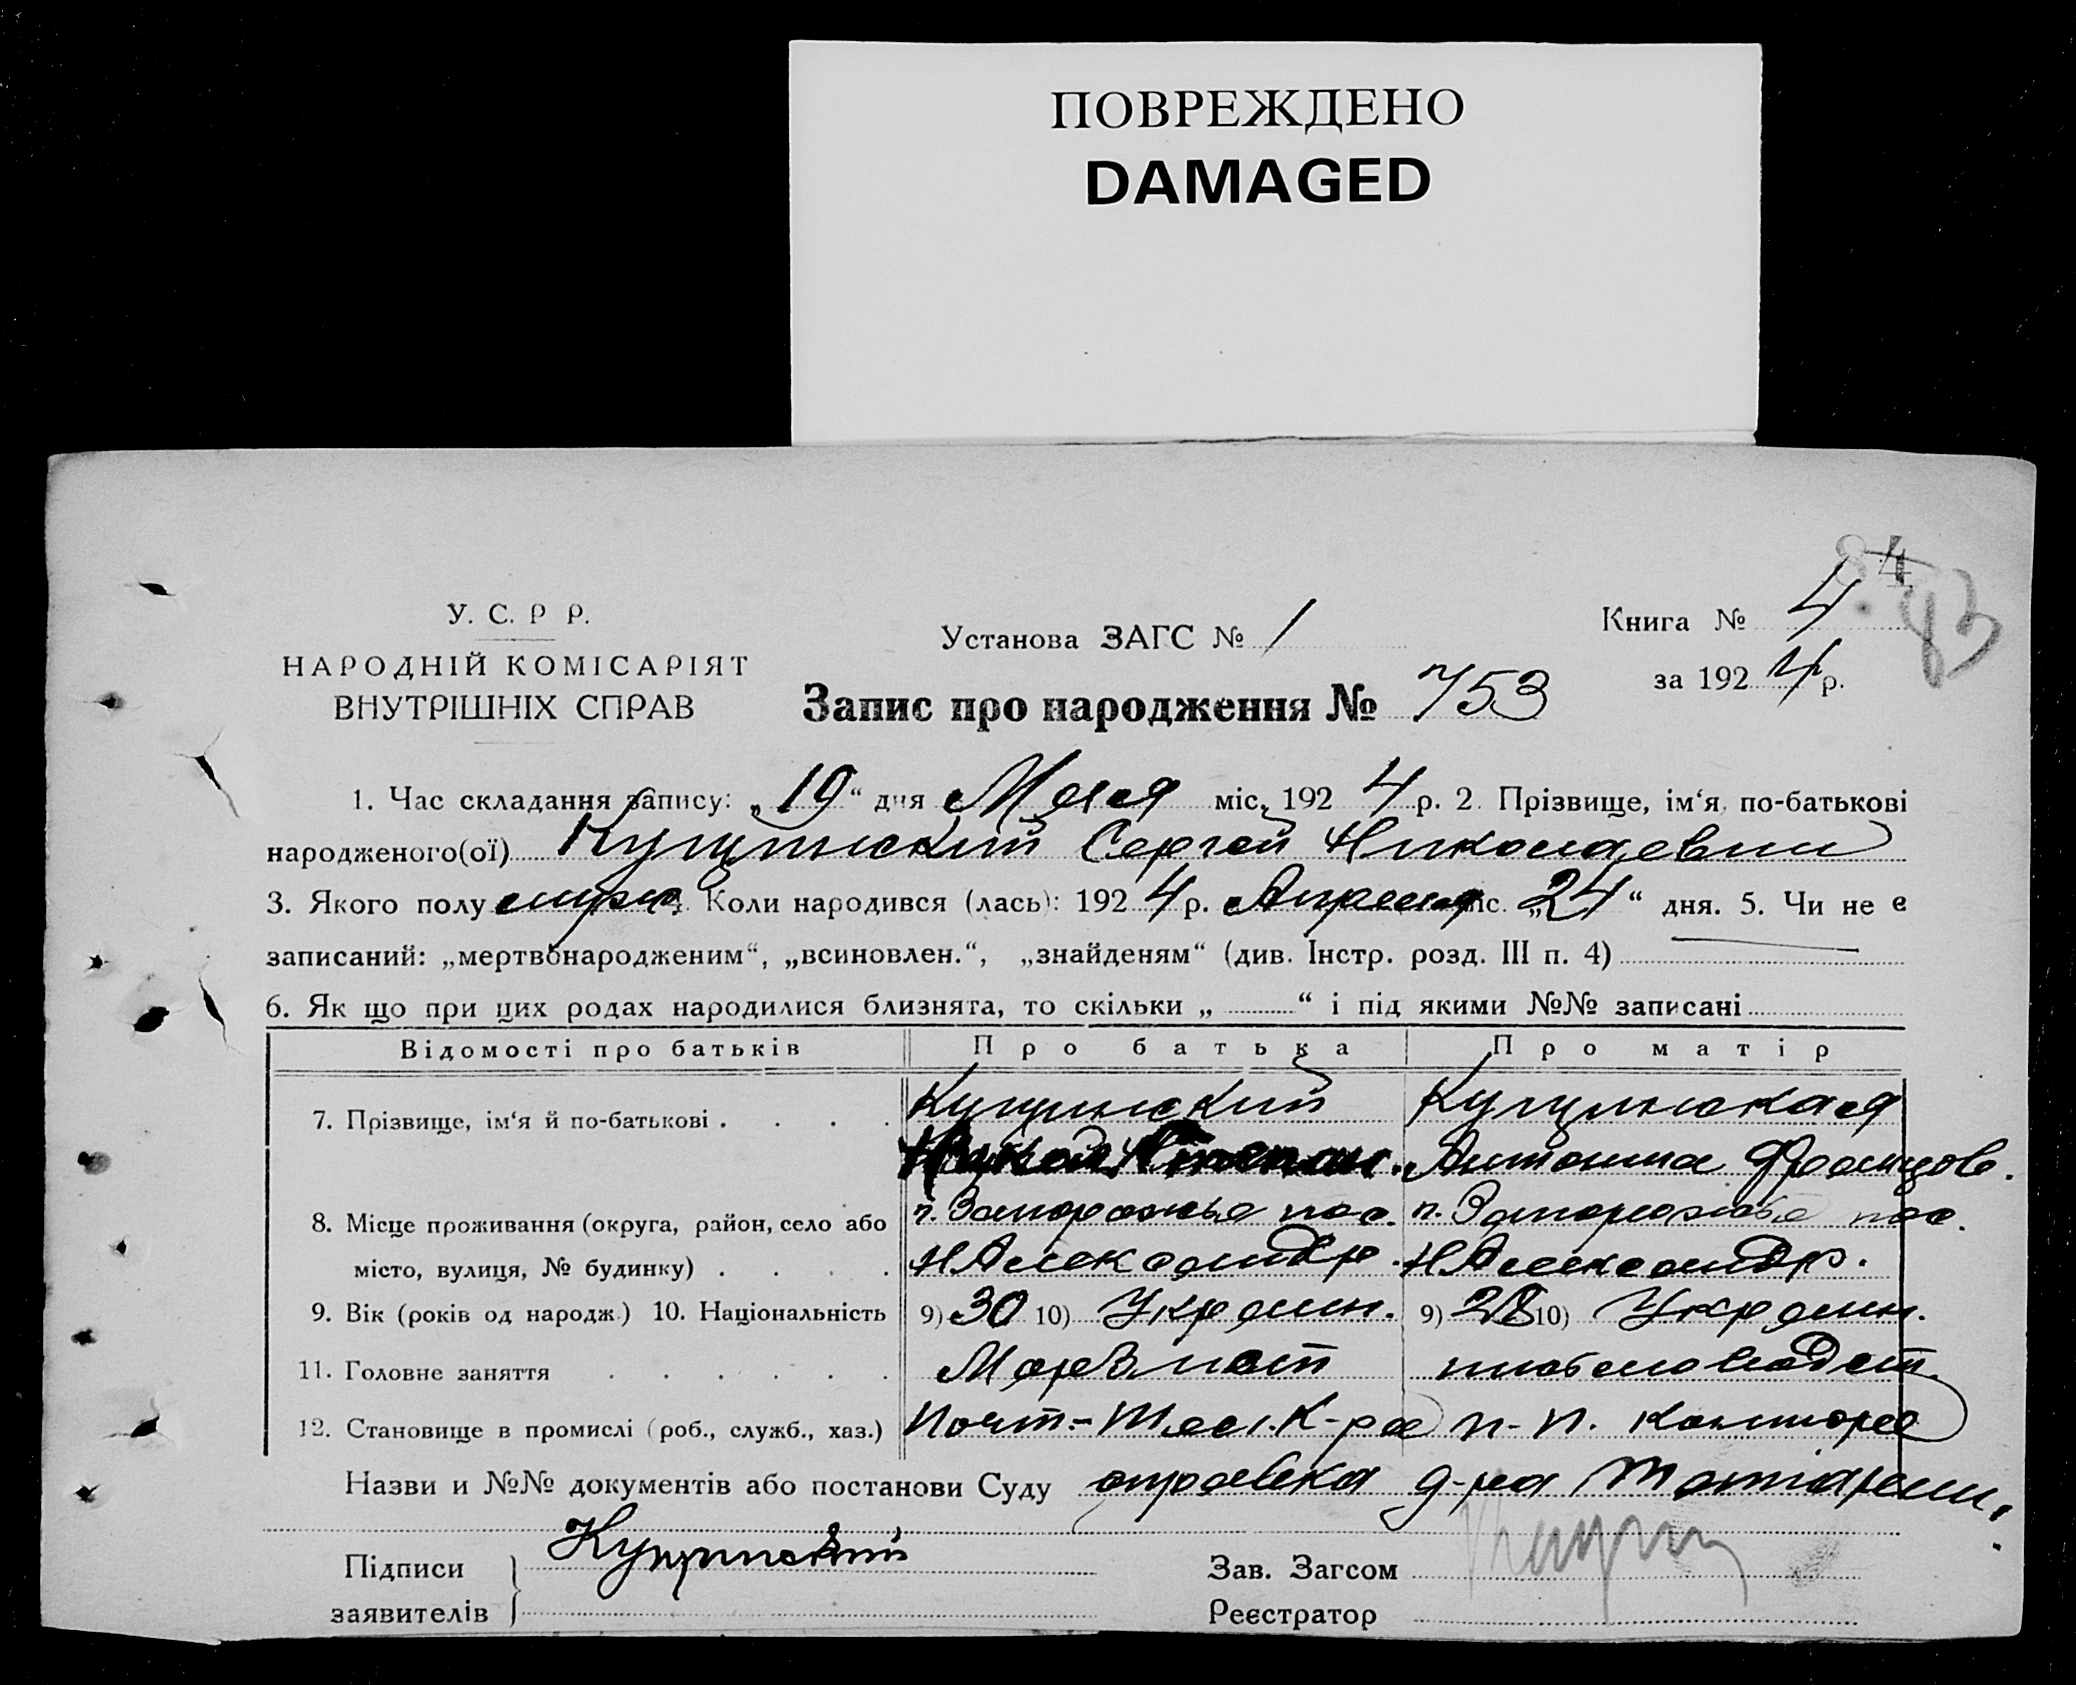 ПОВРЕЖДЕНО
DAMAGED
84
83
У. С. Р Р.
НАРОДНІЙ КОМІСАРІЯТ
ВНУТРІШНІХ СПРАВ
Установа ЗАГС № 1
Книга № 4
за 1924 р.
Запис про народження № 753
1. Час складання запису: „19“ дня Мая міс. 1924 р. 2. Прізвище, ім‘я, по-батькові
народженого(ої) Кущинский Сергей Николаевич
3. Якого полу муж. 4. Коли народився (лась): 1924 р. Апреля міс. „24“ дня. 5. Чи не є
записаний: „мертвонародженим“, „всиновлен.“, „знайденям“ (див. Інстр. розд. III п. 4)
6. Як що при цих родах народилися близнята, то скільки „ “ і під якими №№ записані
Відомості про батьків Про батька Про матір
7. Прізвище, ім‘я й по-батькові . . . . Кущинский Кущинская
Николай Степан. Антонина Францов.
8. Місце проживання (округа, район, село або г. Запорожье пос. г. Запорожье пос.
місто, вулиця, № будинку) . . . . Н Александр. Н Александр.
9. Вік (років од народж.) 10. Національність 9) 30 10) Украин. 9) 28 10) Украин.
11. Головне заняття . . . . . . Морзист
12. Становище в промислі (роб., служб., хаз.) Почт.-Тел. К-ра п-т. контора
Назви и №№ документів або постанови Суду справка д-ра
Підписи Кущинский
заявителів
Зав. Загсом
Реєстратор